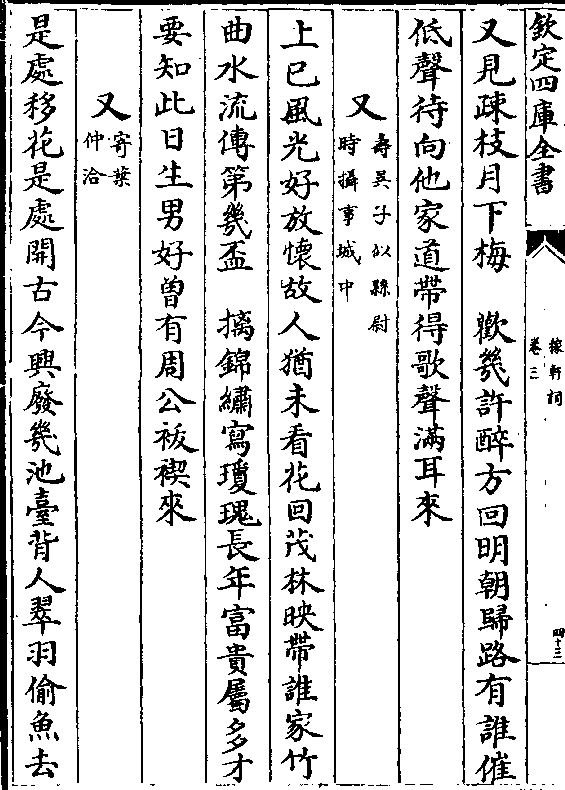 欽定四庫全書
稼軒詞
卷三
四十三
又見疎枝月下梅　歡幾許醉方回明朝歸路有誰催
低聲待向他家道帶得歌聲滿耳來
又
壽吳子似縣尉
時攝事城中
上巳風光好放懷故人猶未看花回茂林映帶誰家竹
曲水流傳第幾盃　摛錦繡寫瓊瑰長年富貴屬多才
要知此日生男好曽有周公祓禊來
又
寄葉
仲洽
是處移花是處開古今興廢幾池臺背人翠羽偷魚去